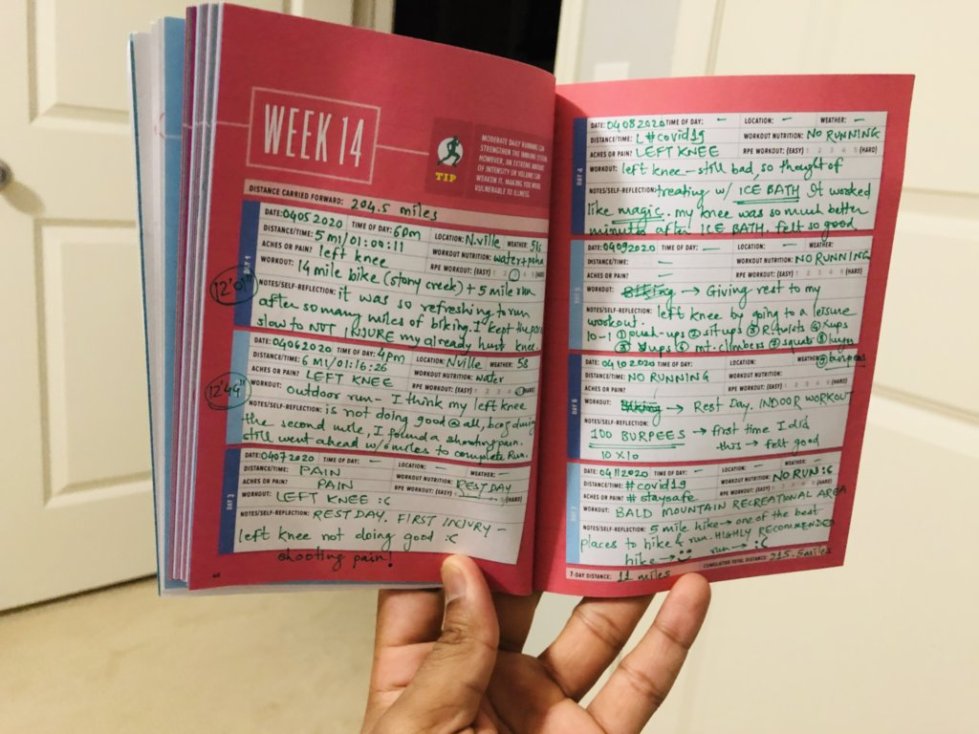 WEEK 14
MODERATE DAILY RUNNING CAN
STRENGTHEN THE IMMUNE SYSTEM.
HOWEVER, AN EXTREME AMOUNT
OF INTENSITY OR VOLUME CAN
WEAKEN IT, MAKING YOU MORE
VULNERABLE TO ILLNESS.
TIP
DISTANCE CARRIED FORWARD: 204.5 miles
DAY 1
DATE: 0405 2020 TIME OF DAY: 6pm LOCATION: N.ville WEATHER:
DISTANCE/TIME: 5 mi/01:00:11 WORKOUT NUTRITION: water+
ACHES OR PAIN? left knee RPE WORKOUT: (EASY) 1 2 3 4 5 (HARD)
WORKOUT: 14 mile bike (stony creek) + 5 mile run
12'01"
NOTES/SELF-REFLECTION: it was so refreshing to run
after so many miles of biking. I kept the
slow to NOT INJURE my already hurt knee.
DATE: 0406 2020 TIME OF DAY: 4pm LOCATION: Nville WEATHER: 58
DISTANCE/TIME: 6 MI/01:16:26 WORKOUT NUTRITION: water
ACHES OR PAIN? LEFT KNEE RPE WORKOUT: (EASY) 1 2 3 4 5 (HARD)
WORKOUT: Outdoor run - I think my left knee
12'44"
NOTES/SELF-REFLECTION: is not doing good @ all, bcoz during
the second mile, I found a shooting pain. I
still went ahead w/ 6 miles to complete Run.
DAY 3
DATE: 0407 2020 TIME OF DAY: – LOCATION: – WEATHER: –
DISTANCE/TIME: PAIN WORKOUT NUTRITION: REST DAY
ACHES OR PAIN? PAIN RPE WORKOUT: (EASY) 1 2 3 4 5 (HARD)
WORKOUT: LEFT KNEE :C
NOTES/SELF-REFLECTION: REST DAY. FIRST INJURY –
left knee not doing good :C
shooting pain!
DAY 4
DATE: 0408 2020 TIME OF DAY: – LOCATION: – WEATHER: –
DISTANCE/TIME: L #covid19 WORKOUT NUTRITION: NO RUNNING
ACHES OR PAIN? LEFT KNEE RPE WORKOUT: (EASY) 1 2 3 4 5 (HARD)
WORKOUT: left knee – still bad, so thought of
NOTES/SELF-REFLECTION: treating w/ ICE BATH It worked
like magic. my knee was so much better
minute after ICE BATH. felt so good
DAY 5
DATE: 0409 2020 TIME OF DAY: – LOCATION: – WEATHER: –
DISTANCE/TIME: – WORKOUT NUTRITION: NO RUNNING
ACHES OR PAIN? – RPE WORKOUT: (EASY) 1 2 3 4 5 (HARD)
WORKOUT: Biking → Giving rest to my
NOTES/SELF-REFLECTION: left knee by going to a leisure
workout.
10-1 ① push-ups ② sit ups ③ R.twists ④ Xups
⑤ ups ⑥ mt. climbers ⑦ squats ⑧ lunges
⑨ burpees
DAY 6
DATE: 04 10 2020 TIME OF DAY: – LOCATION: – WEATHER:
DISTANCE/TIME: NO RUNNING WORKOUT NUTRITION:
ACHES OR PAIN? – RPE WORKOUT: (EASY) 1 2 3 4 5 (HARD)
WORKOUT: Biking → Rest Day. INDOOR WORKOUT
NOTES/SELF-REFLECTION:
100 BURPEES → first time I did
10 X 10 this → felt good
DATE: 04 11 2020 TIME OF DAY: – LOCATION: – WEATHER: –
DISTANCE/TIME: #covid19 WORKOUT NUTRITION: NO RUN :C
ACHES OR PAIN? #staysafe RPE WORKOUT: (EASY) 1 2 3 4 5 (HARD)
WORKOUT: BALD MOUNTAIN RECREATIONAL AREA
NOTES/SELF-REFLECTION: 5 mile hike → one of the best
places to hike & run. HIGHLY RECOMMENDED
hike → :) run → :C
7-DAY DISTANCE: 11 miles CUMULATIVE TOTAL DISTANCE: 215.5 miles